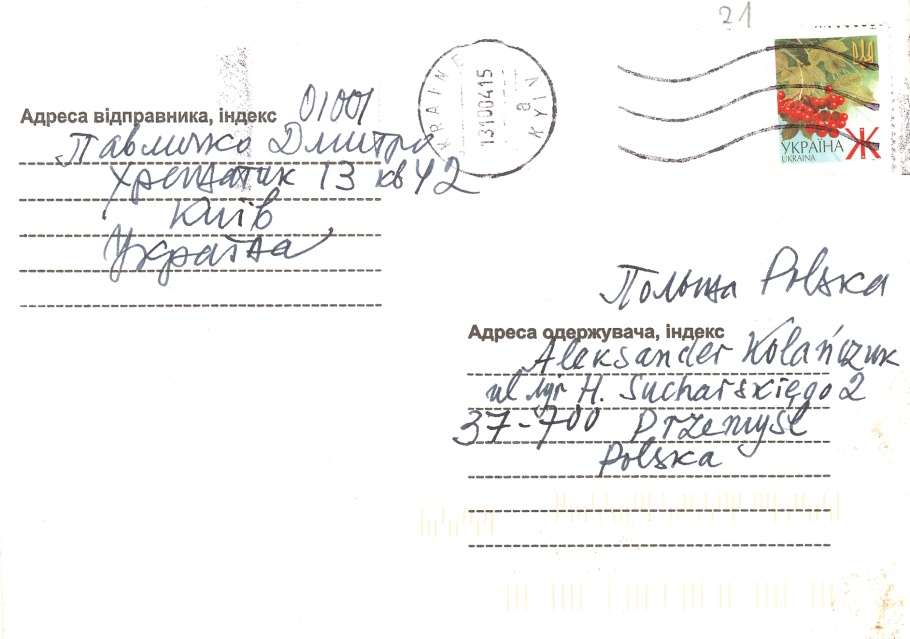 21
UKRAINE
13100415
а
KYIV
УКРАЇНА
UKRAINA
Ж
Адреса відправника, індекс 01001
Павличко Дмитро
Хрещатик 13 кв 42
Київ
Україна
Польща Polska
Адреса одержувача, індекс
Aleksander Kolańczuk
ul mjr H. Sucharskiego 2
37-700 Przemyśl
Polska